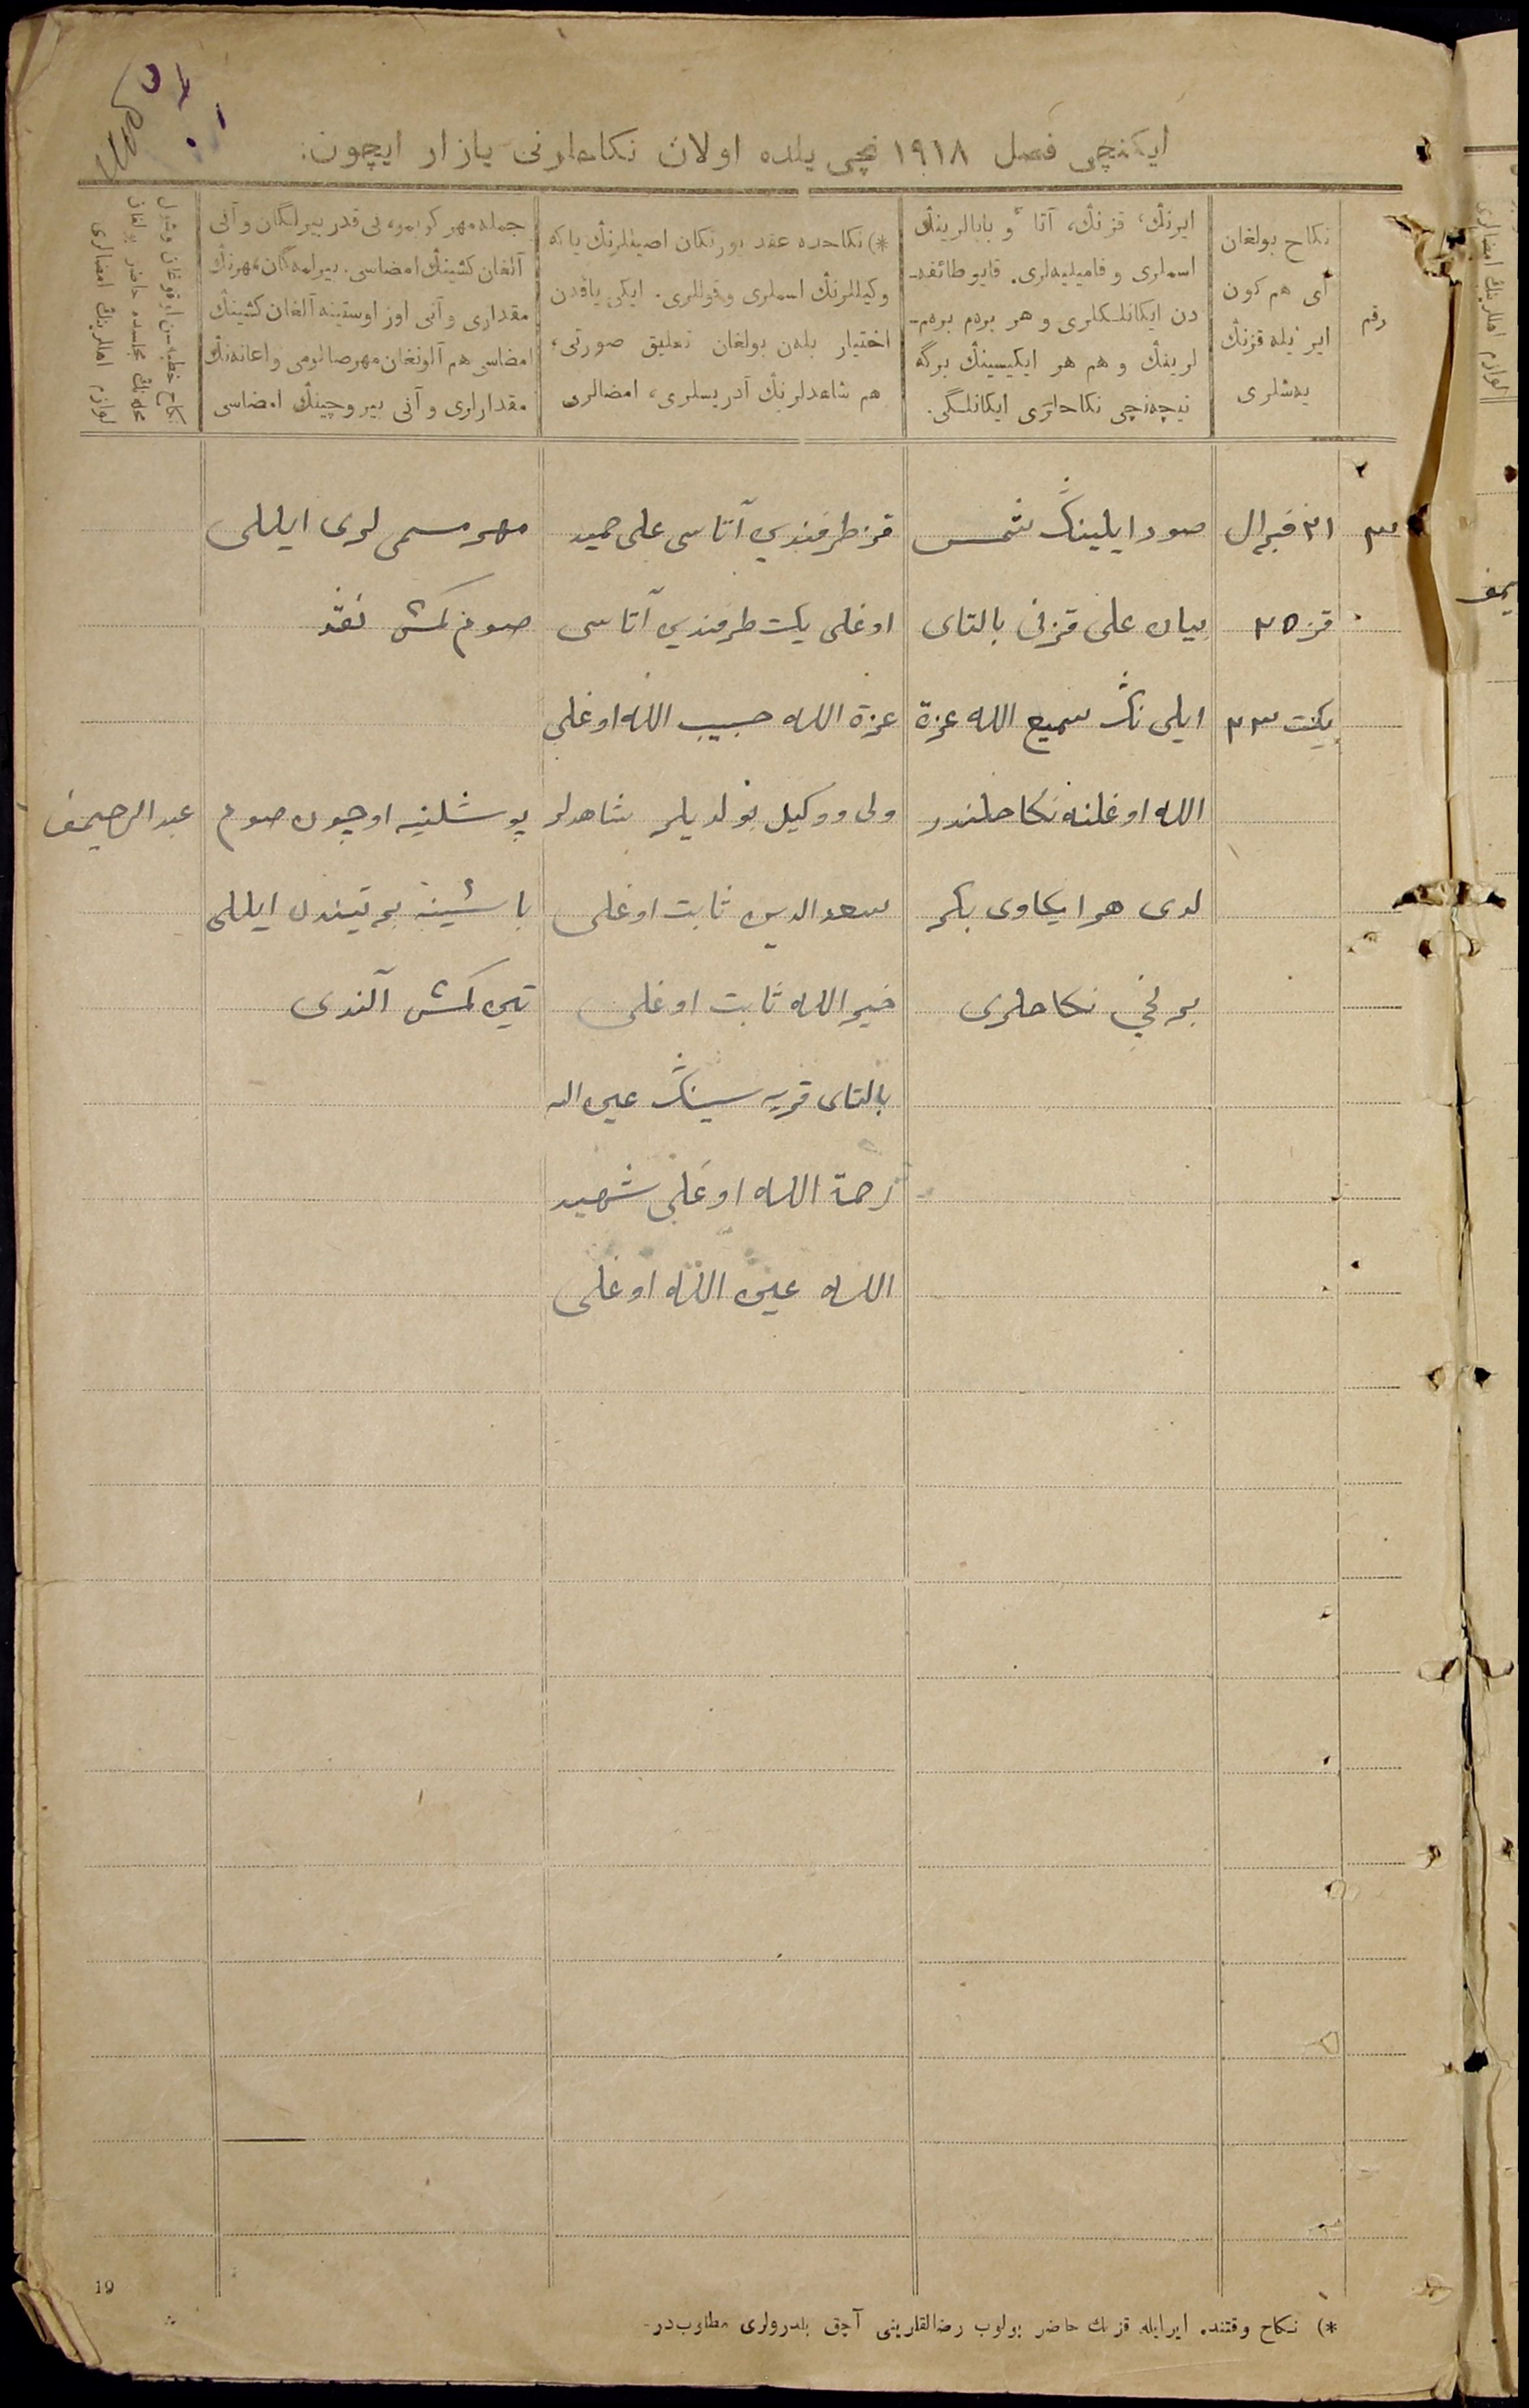 ایکنچی فصل ۱۹۱۸ نچی یلده اولان نکاحلرنی یازار ایچون:
رقم
نکاح بولغان
آی هم کون
ایر ئیله قزنڭ
یەشلری
ایرنڭ، قزنڭ، آتا و بابالرینڭ
اسملری و فامیلیەلری. قایو طائفە-
دن ایکانلکلری و هر برەم برەم-
لرینڭ و هم هر ایکیسینڭ برگه
نیچەنچی نکاحلری ایکانلگی.
*) نکاحده عقد یورتکان اصیللرنڭ یاکه
وکیللرنڭ اسملری وقوللری. ایکی یاقدن
اختیار بلەن بولغان تعلیق صورتی،
هم شاهدلرنڭ آدریسلری، امضالری
جمله مهر کوبمو، نی قدر بیرلگان و آنی
آلغان کشینڭ امضاسی. بیرلمەگان مهرنڭ
مقداری و آنی اوز اوستینه آلغان کشینڭ
امضاسی هم آلونغان مهرصالومی واعانەنڭ
مقدارلری و آنی بیروچینڭ امضاسی
نکاح خطبەسن اوقوغان وشول
محلەنڭ مجلسده حاضر بولغان
لوازم اهللرینڭ امضالری
۳
۲۱ فبرال
قز ۲۵
یکیت ۲۳
صور ایلینڭ شمس
بیان علی قزنی بالتای
ایلی نڭ سمیع الله عزة
الله اوغلنه نکاحلندر
لدی هر ایکاوی بکر
برنچی نکاحلری
قز طرفندین آتاسی علی حمید
اوغلی یکت طرفندین آتاسی
عزة الله حبیب الله اوغلی
ولی و وکیل بولدیلر شاهدلر
سعد الدین ثابت اوغلی
خیر الله ثابت اوغلی
بالتای قریه سینڭ عین الله
رحمة الله اوغلی شهید
الله عین الله اوغلی
مهر مسمی لری ایللی
صوم کمش نقد
پوشلنیه اوچون صوم
باشینه بر تیندن ایللی
تین کمش آلندی
عبد الرحیمف
*) نکاح وقتنده ایرایله قزنڭ حاضر بولوب رضالقلرینی آچق بلدرولری مطلوب‌در-
19